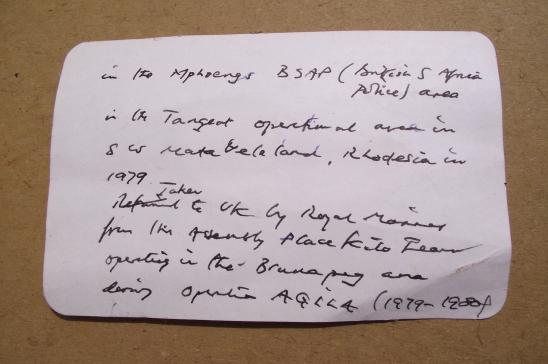 in the Mphoengs BSAP (British S Africa
Police) area
in the Tangent operational area in
S W Matabeleland, Rhodesia in
1979
Taken
to UK by Royal Marines
from the Assembly Place Kilo Team
operating in the Brunapeg area
during Operation AQILA (1979-1980)